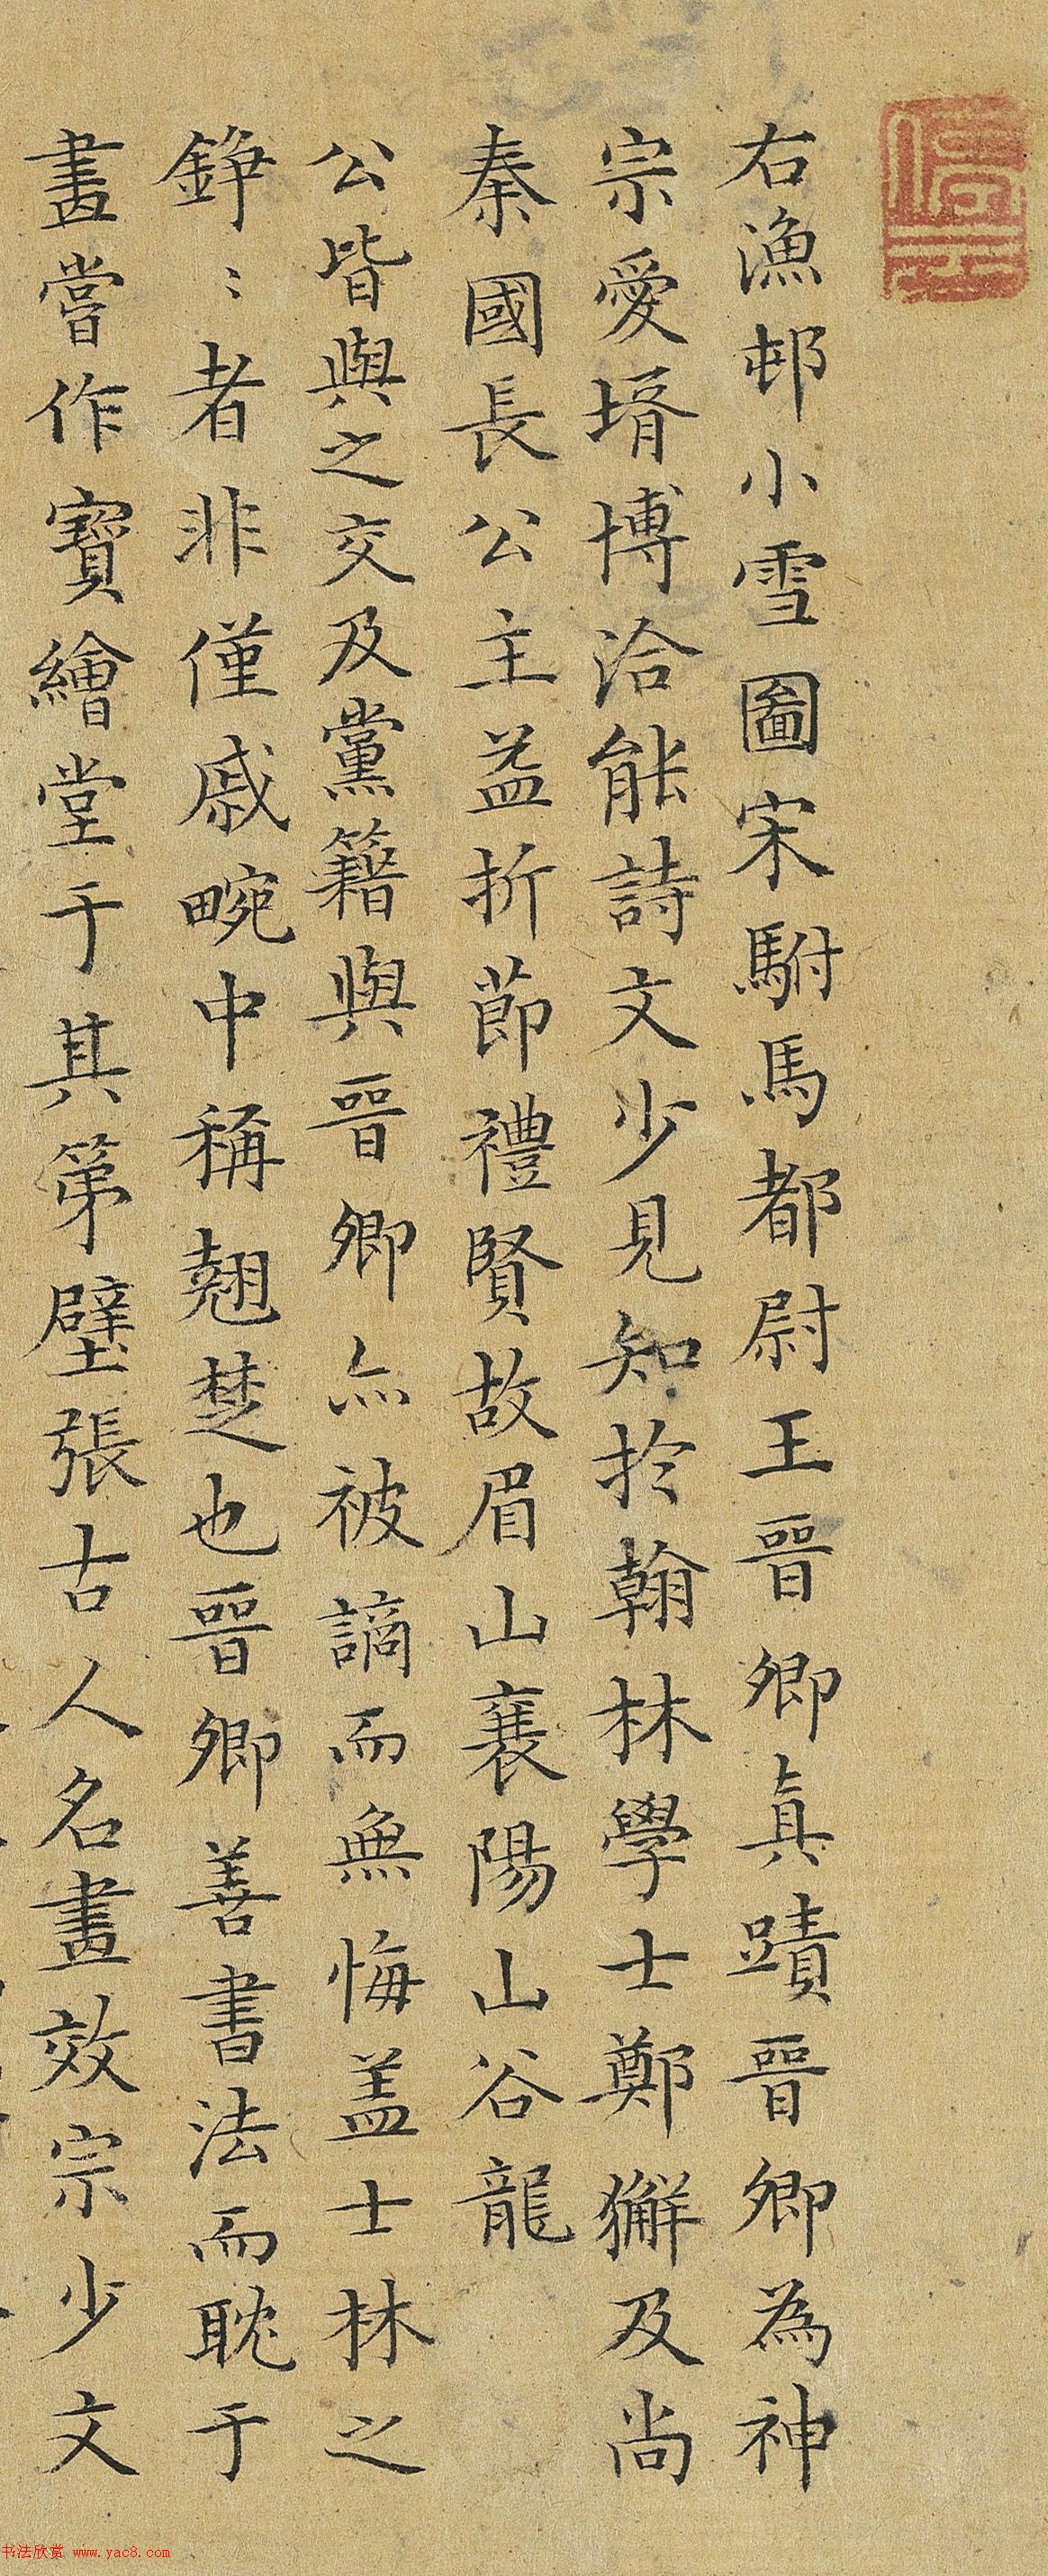 右漁邨小雪圖宋駙馬都尉王晉卿真蹟晉卿為神
宗愛壻博洽能詩文少見知扵翰林學士鄭獬及尚
秦國長公主益折節禮賢故眉山襄陽山谷龍
公皆與之交及黨籍與晉卿亦被謫而無悔蓋士林之
錚〻者非僅戚畹中稱翹楚也晉卿善書法而耽于
畫嘗作寶繪堂于其第壁張古人名畫效宗少文
书法欣赏 www.yac8.com